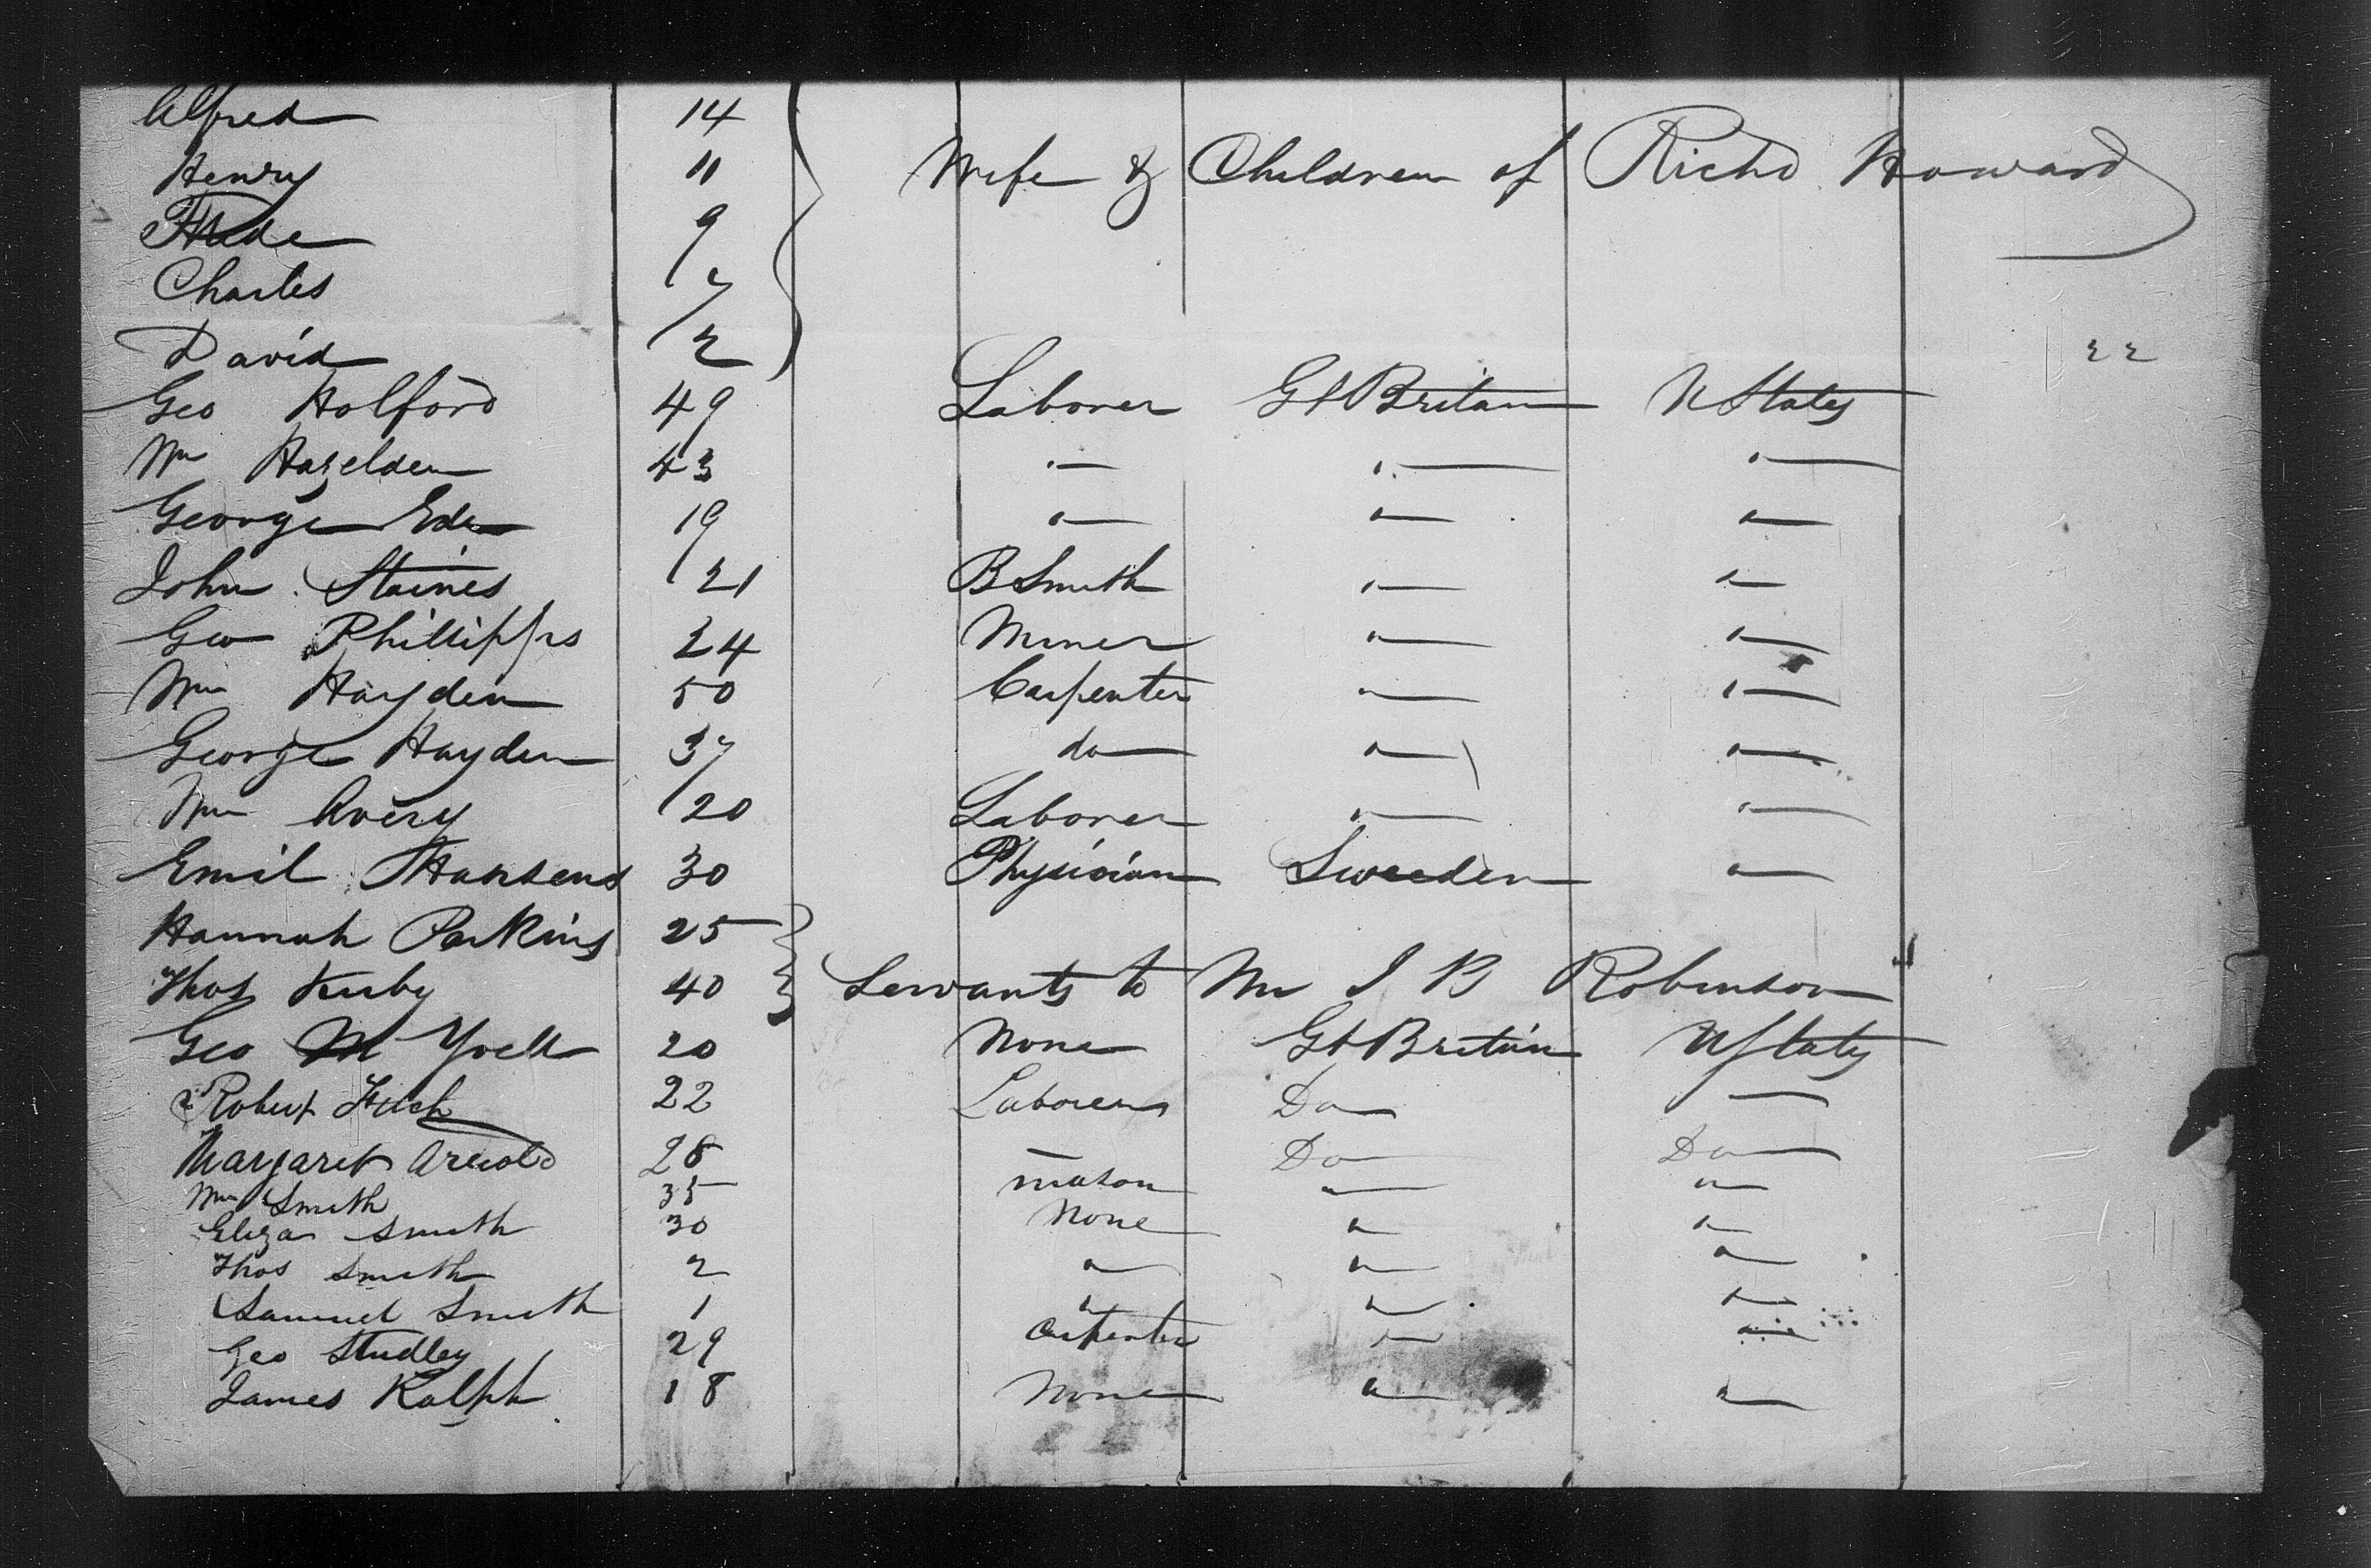 Alfred 14
Henry 11 Wife & Children of Richd Howard
9
Charles 7
David 2
Geo Holford 49 Laborer Gt Britain U States
Wm Hazelden 43 " " "
George Eden 19 " " "
John Staines 21 B Smith " "
Geo Phillipps 24 Miner " "
Wm Hayden 50 Carpenter " "
George Hayden 37 do " "
Wm Avery 20 Laborer " "
Emil 30 Physician Sweeden "
Hannah Parkins 25
Thos Kirby 40 Servants to Mr J B Robinson
Geo M Yoell 20 None Gt Britain U States
Robert 22 Laborer Do "
Margaret Arnold 28 — Do Do
Wm Smith 35 mason " "
Eliza Smith 30 None " "
Thos Smith 2 " " "
Samuel Smith 1 " " "
Geo Studley 29 Carpenter " "
James Ralph 18 None " "